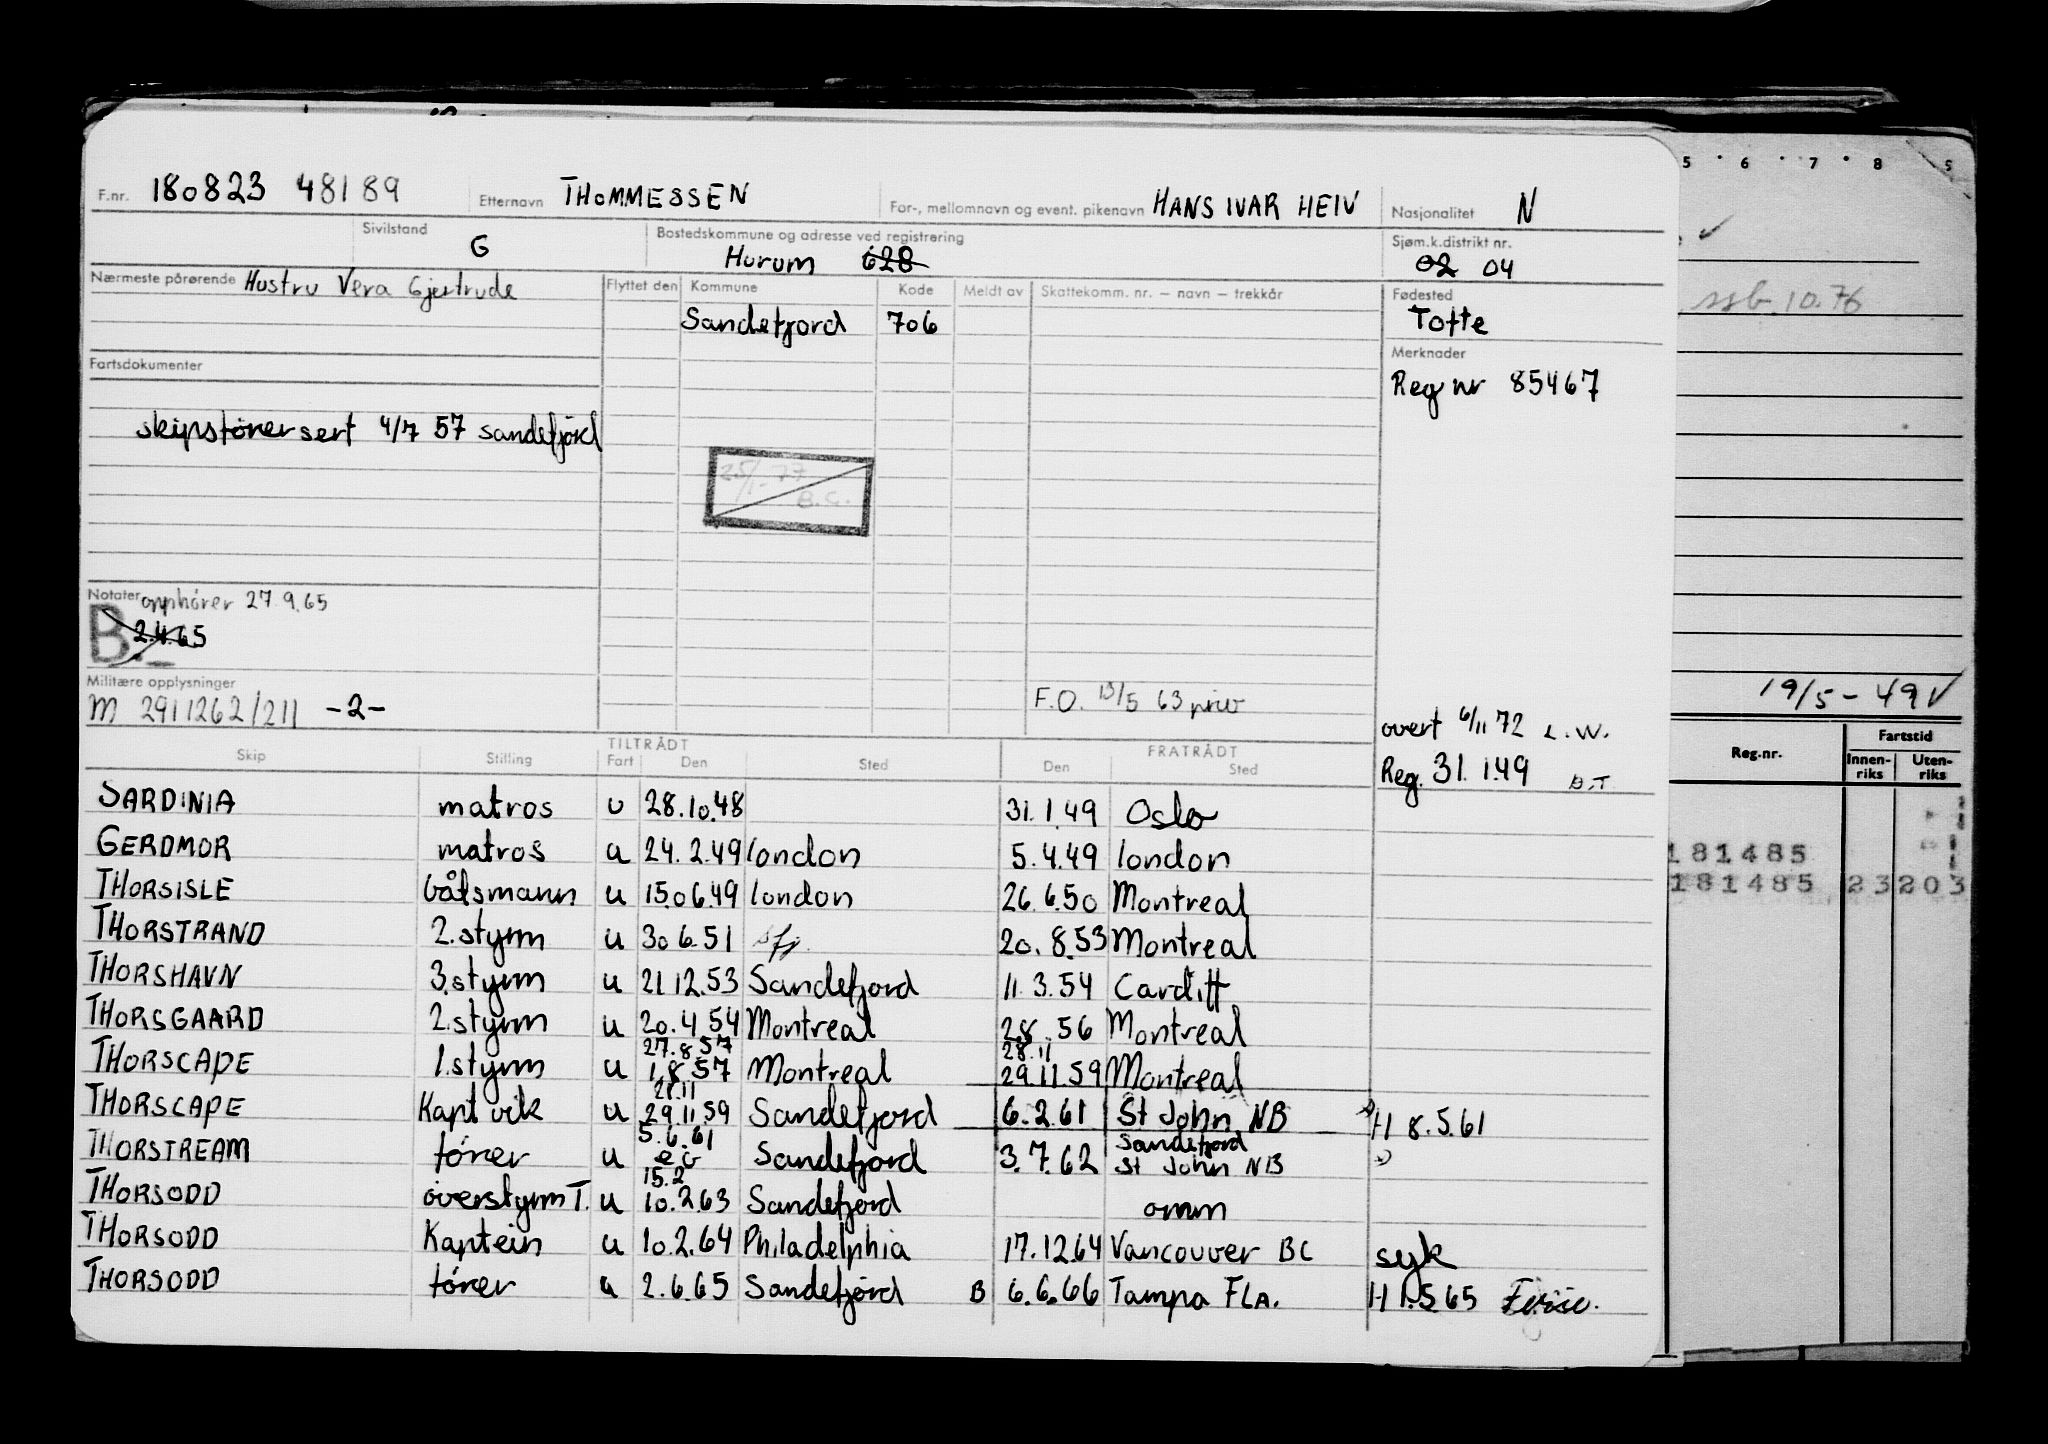 F.nr. 180823 48189 Etternavn THOMMESSEN For-, mellomnavn og event. pikenavn HANS IVAR HEIV Nasjonalitet N
Sivilstand G Bostedskommune og adresse ved registrering Hurum 628 Sjøm.k.distrikt nr. 02 04
Nærmeste pårørende Hustru Vera Gjertrude Flyttet den Kommune Kode Meldt av Skattekomm. nr. – navn – trekkår Fødested
Sandefjord 706 Tofte
Fartsdokumenter Merknader
Reg nr 85467
skipsførersert 4/7 57 Sandefjord
25/1-77
B.C.
Notater opphører 27.9.65
B 2.4.65
Militære opplysninger
M 2911262/211 -2- F.O. 13/5 63 priv
overf 6/11 72 L.W.
Reg. 31.1.49 B.T.
TILTRÅDT FRATRÅDT
Skip Stilling Fart Den Sted Den Sted
SARDINIA matros u 28.10.48 31.1.49 Oslo
GERDMOR matros a 24.2.49 london 5.4.49 london
THORSISLE båtsmann u 15.06.49 london 26.6.50 Montreal
THORSTRAND 2.styrm u 30 6.51 sfj. 20.8.53 Montreal
THORSHAVN 3.styrm u 21 12.53 Sandefjord 11.3.54 Cardiff
THORSGAARD 2.styrm u 20.4 54 Montreal 28.56 Montreal
27.8 57 28.11
THORSCAPE 1.styrm u 1.8 57 Montreal 29.11.59 Montreal
28.11
THORSCAPE Kapt vik u 29.11.59 Sandefjord 6.2.61 St John NB H 8.5.61
5.6.61 Sandefjord
THORSTREAM fører u Sandefjord 3.7.62 St John NB
15.2
THORSODD overstyrm T. u 10.2.63 Sandefjord omm
THORSODD Kaptein u 10.2.64 Philadelphia 17.12.64 Vancouver BC syk
THORSODD fører u 2.6.65 Sandefjord B 6.6.66 Tampa FLA. H 1.5 65 Ferie.
5 6 7 8 5
ssb. 10.76
19/5-49
Reg.nr. Fartstid
Innen-riks Uten-riks
181485
181485 23 203